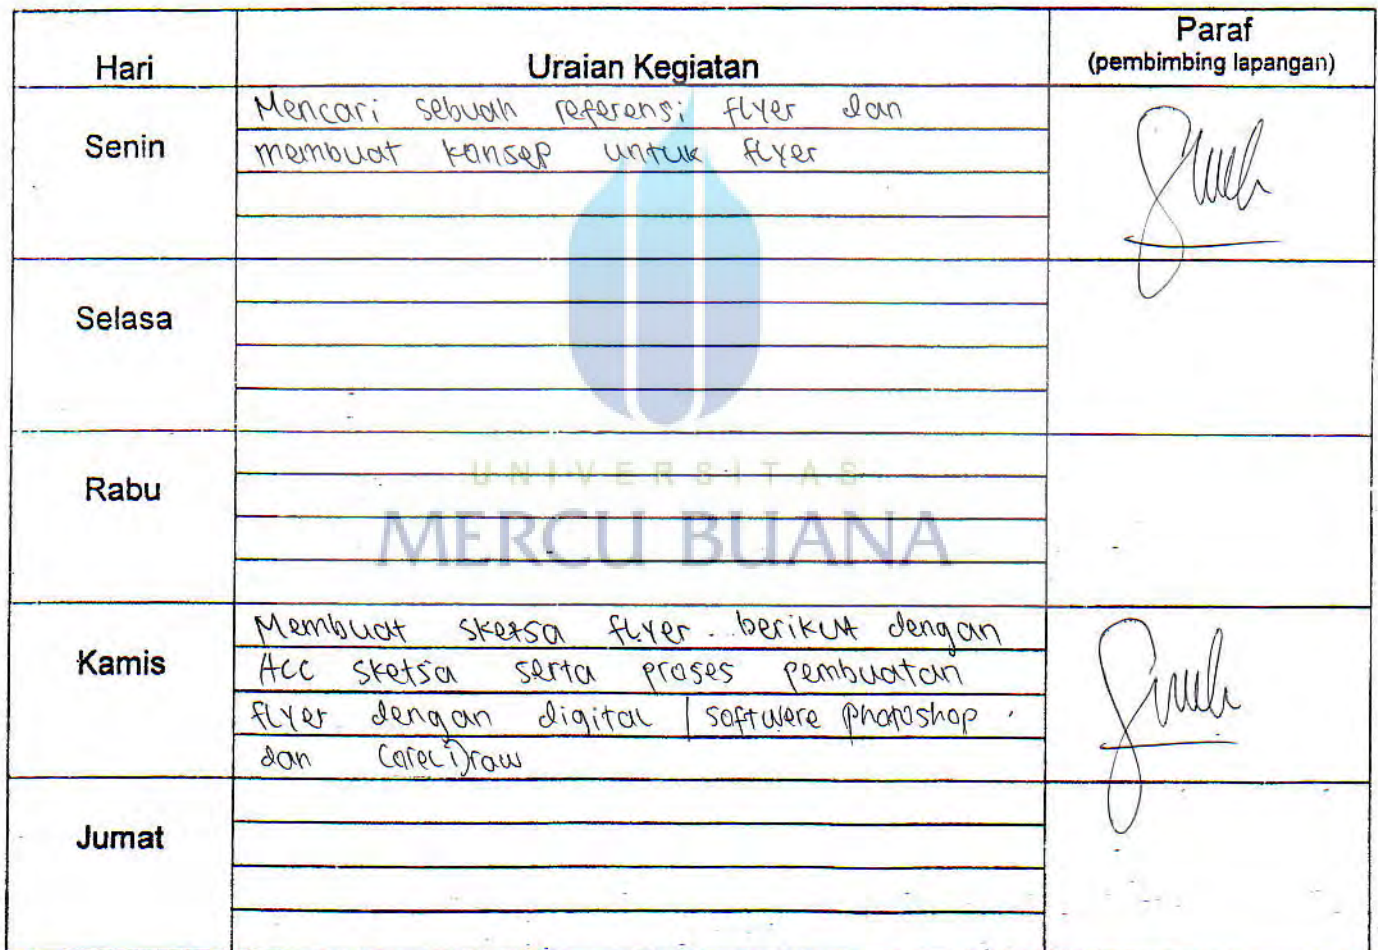 Hari
Uraian Kegiatan
Paraf
(pembimbing lapangan)
Senin
Mencari sebuah referensi flyer dan
membuat konsep untuk flyer
Selasa
Rabu
UNIVERSITAS
MERCU BUANA
Kamis
Membuat sketsa flyer berikut dengan
Acc sketsa serta proses pembuatan
flyer dengan digital / softwere photoshop
dan CorelDraw
Jumat